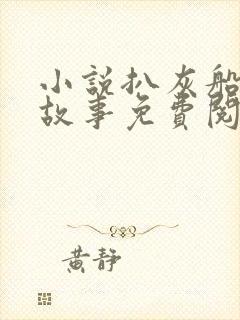 小說扒灰船
故事免費閱
黃靜